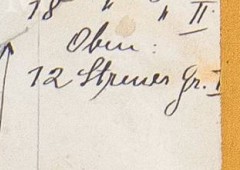 18 " " II.
Oben:
12 Streuer Gr. I